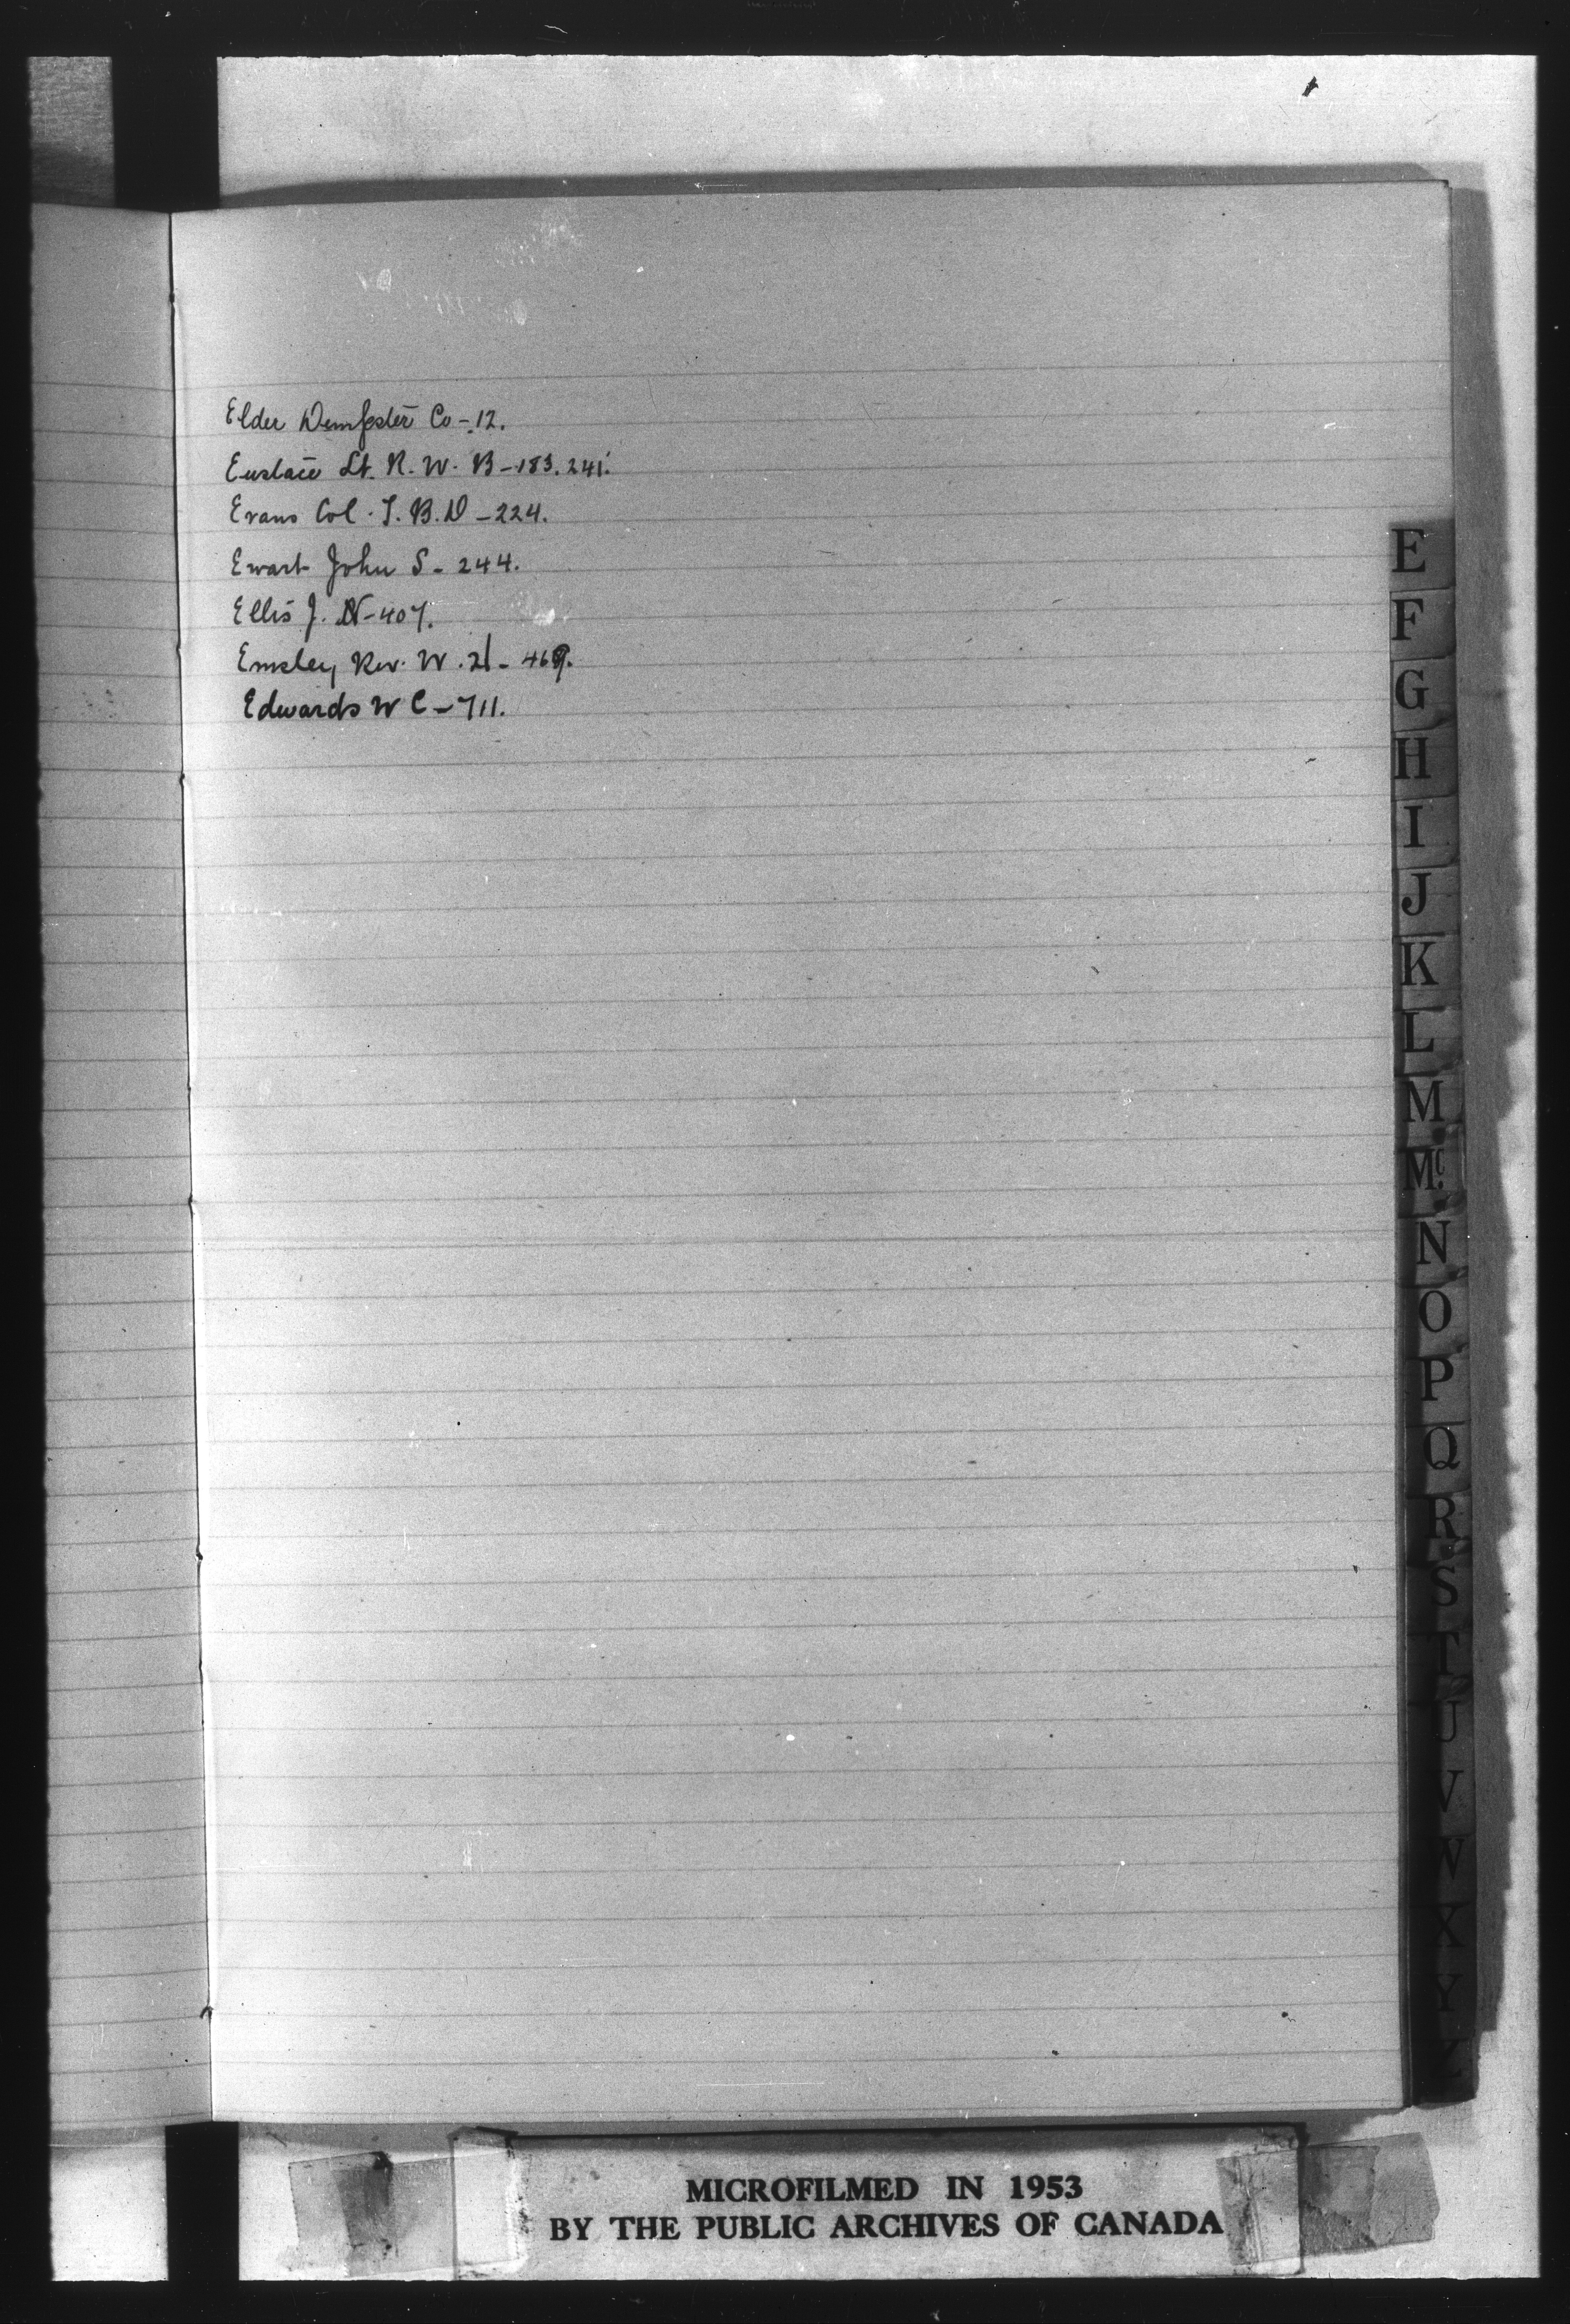 Elder Dempster Co - 12.
Eustace Lt. R. W. B - 183. 241.
Evans Col. T. B. D - 224.
Ewart John S - 244.
Ellis J. N - 407.
Emsley Rev. W. H - 469.
Edwards W C - 711.
E
F
G
H
I
J
K
L
M
Mc.
N
O
P
Q
R
S
T
U
V
W
X
Y
Z
MICROFILMED IN 1953
BY THE PUBLIC ARCHIVES OF CANADA